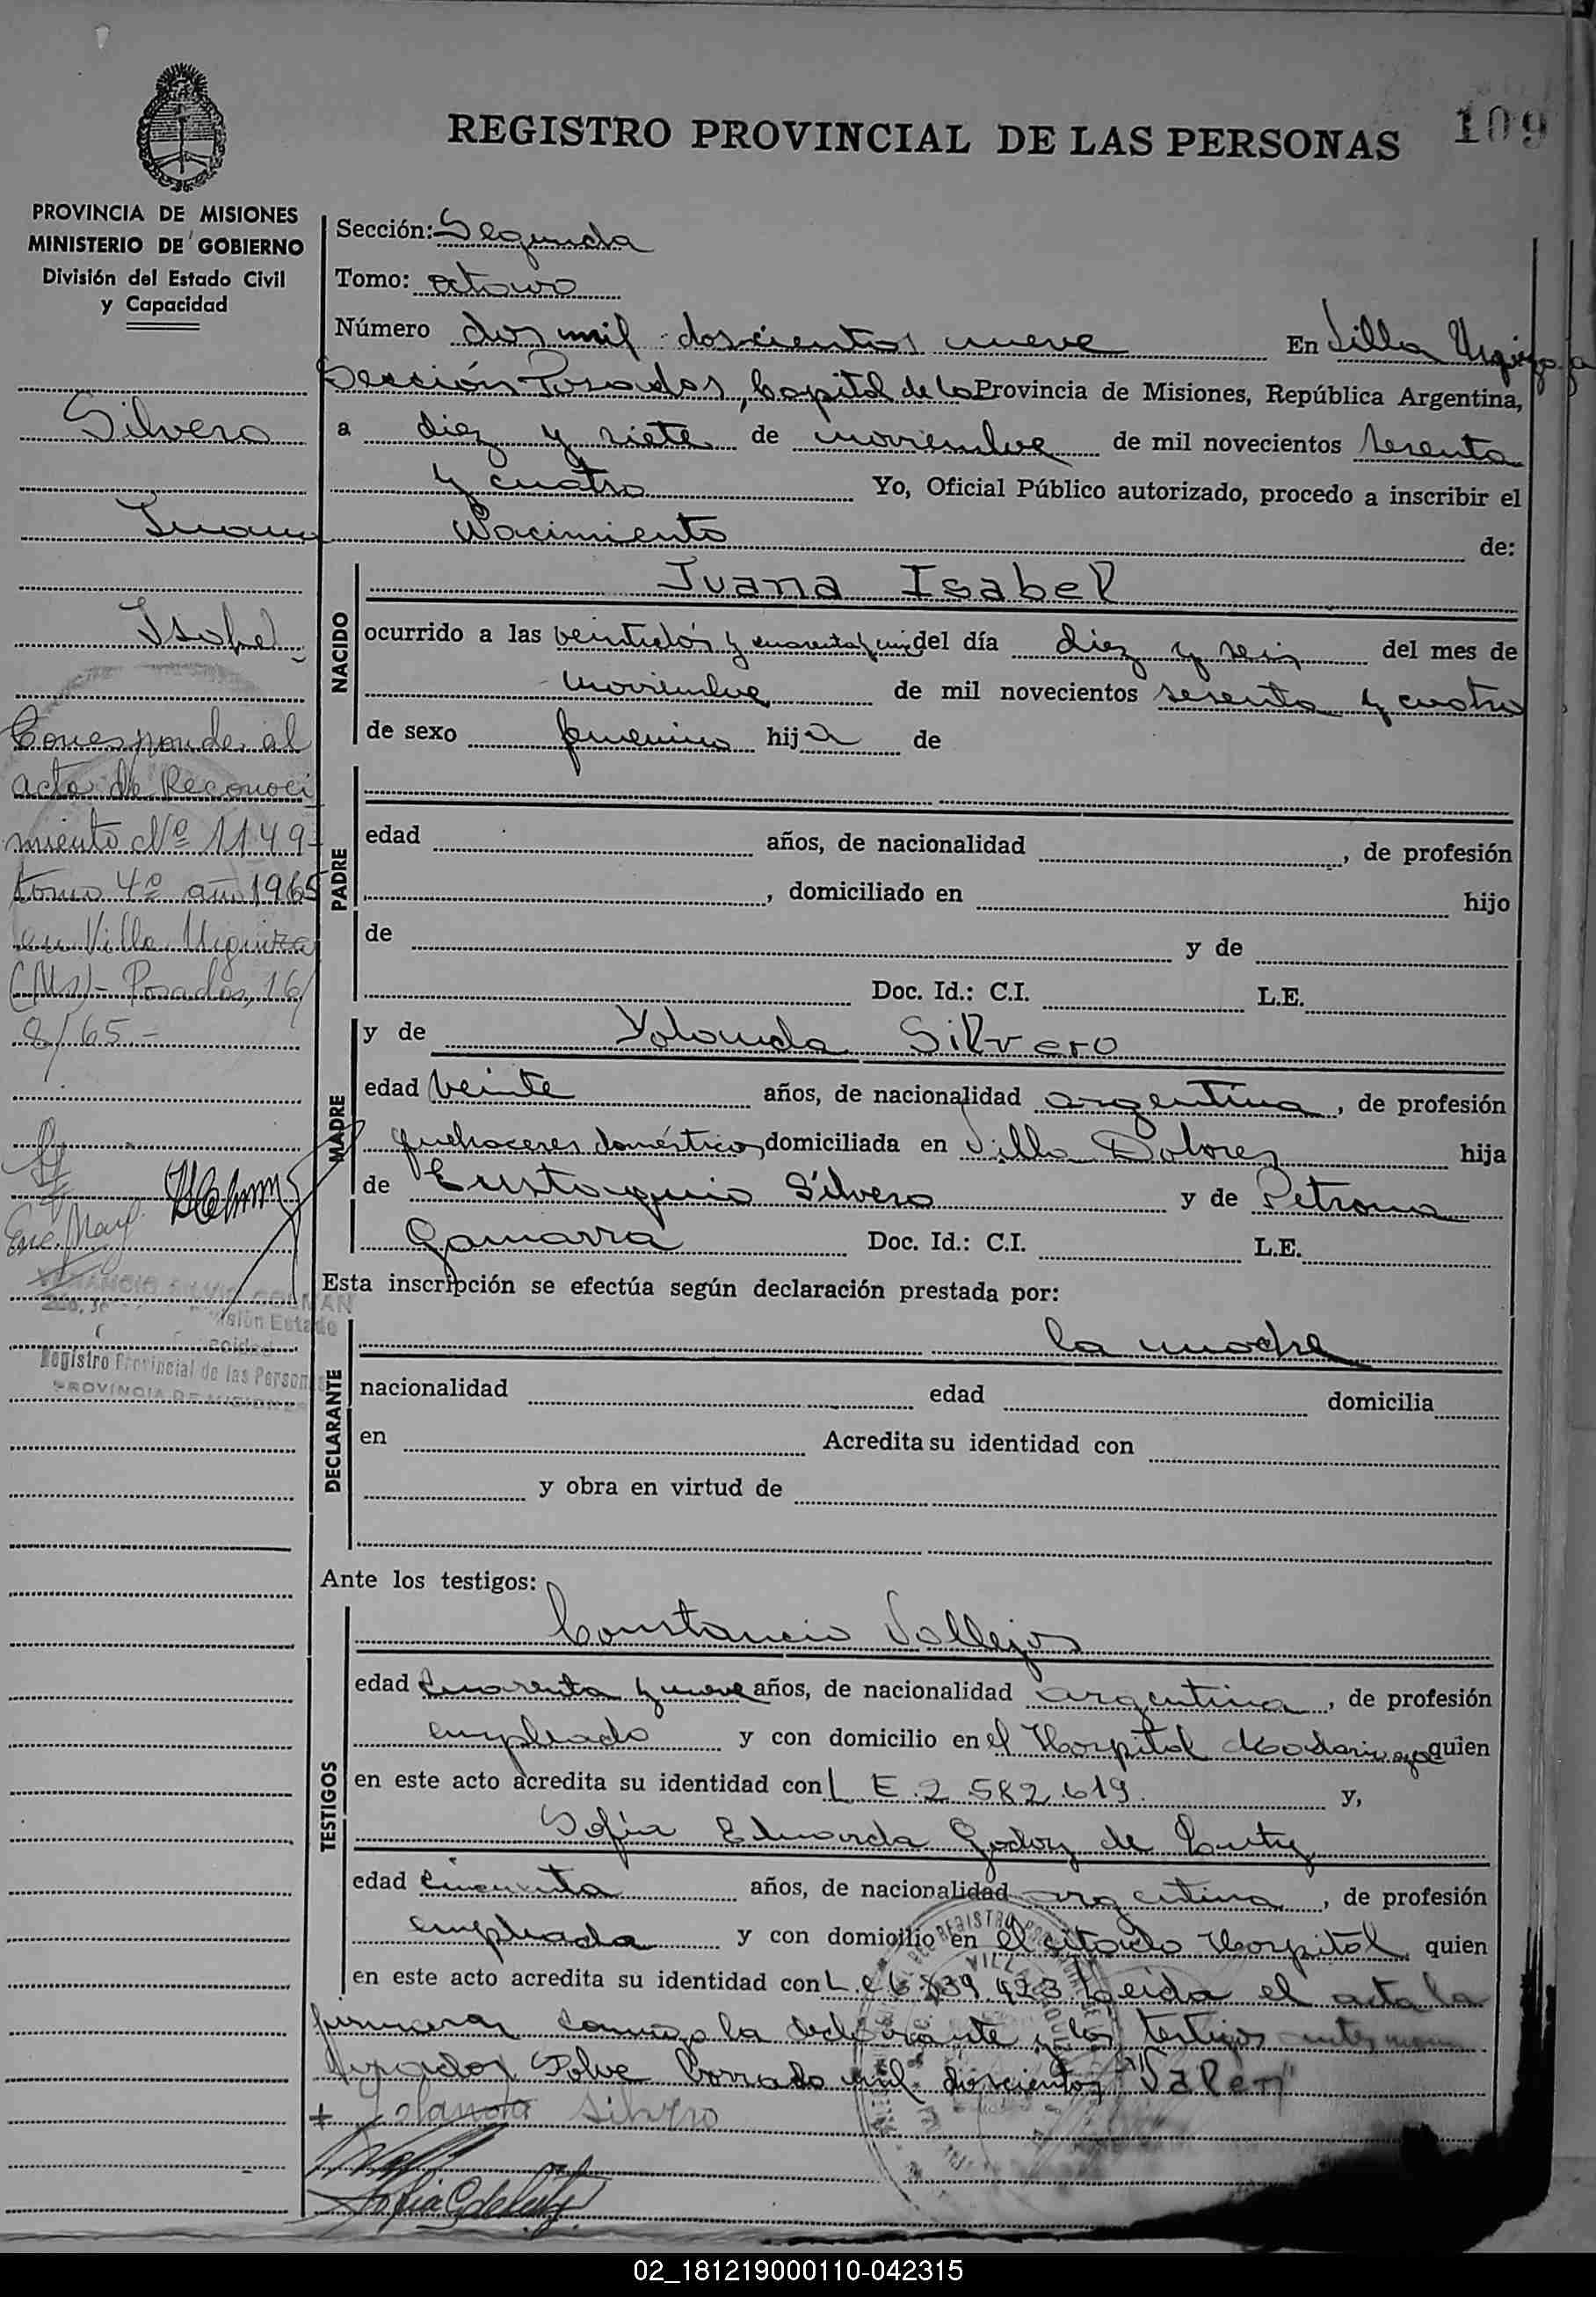 109
REGISTRO PROVINCIAL DE LAS PERSONAS
PROVINCIA DE MISIONES
MINISTERIO DE GOBIERNO
División del Estado Civil
y Capacidad
Silvero
Juana
Isabel
Corresponde al
acta de Reconoci
miento Nº 1149-
tomo 4º año 1965
en Villa Urquiza
(Ms)- Posadas, 16/
8/65.-
Enc. May.
Registro Provincial de las Personas
PROVINCIA DE MISIONES
Sección: Segunda
Tomo: octavo
Número dos mil doscientos nueve En Villa Urquiza
Sección Posadas, Capital de la Provincia de Misiones, República Argentina,
a diez y siete de noviembre de mil novecientos sesenta
y cuatro Yo, Oficial Público autorizado, procedo a inscribir el
Nacimiento de:
NACIDO
Juana Isabel
ocurrido a las veintidós y cuarenta del día diez y seis del mes de
noviembre de mil novecientos sesenta y cuatro
de sexo femenino hija de
PADRE
edad años, de nacionalidad , de profesión
, domiciliado en hijo
de y de
Doc. Id.: C.I. L.E.
MADRE
y de Yolanda Silvero
edad veinte años, de nacionalidad argentina, de profesión
quehaceres domésticos domiciliada en Villa Dolores hija
de Eustaquio Silvero y de Petrona
Gamarra Doc. Id.: C.I. L.E.
Esta inscripción se efectúa según declaración prestada por:
DECLARANTE
la madre
nacionalidad edad domicilia
en Acredita su identidad con
y obra en virtud de
Ante los testigos:
TESTIGOS
Constancio Vallejos
edad cuarenta y nueve años, de nacionalidad argentina, de profesión
empleado y con domicilio en el Hospital Madariaga quien
en este acto acredita su identidad con L E 2 582.619 y,
Sofia Eduarda Godoy de
edad cincuenta años, de nacionalidad argentina, de profesión
empleada y con domicilio en el citado Hospital quien
en este acto acredita su identidad con L.C 6.839.423 Leida el acta la
firmaron conmigo la declarante y los testigos antes
Salve borrado mil doscientos "Valen"
+ Yolanda Silvero
02_181219000110-042315